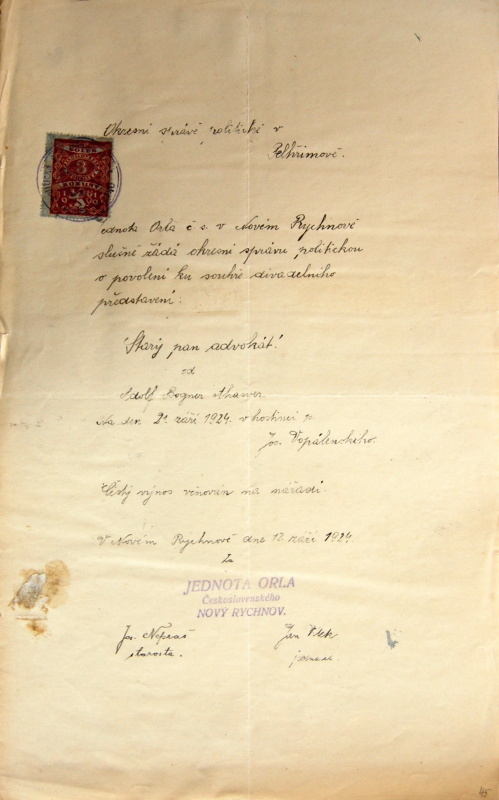 Okresní správě politické v
Pelhřimově.
KOLEK
ednota Orla č s. v Novém Rychnově
slušně žádá okresní správu politickou
o povolení ku souhře divadelního
představení:
"Starý pan advokát".
od
Adolf Bogner
Na den 21 září 1924 v hostinci p.
Jos. Vopálenského.
Čistý výnos věnován na nářadí.
V Novém Rychnově dne 12. září 1924
Za
JEDNOTA ORLA
Československého
NOVÝ RYCHNOV.
Jos. Nepraš
starosta.
Jan Vlek
45